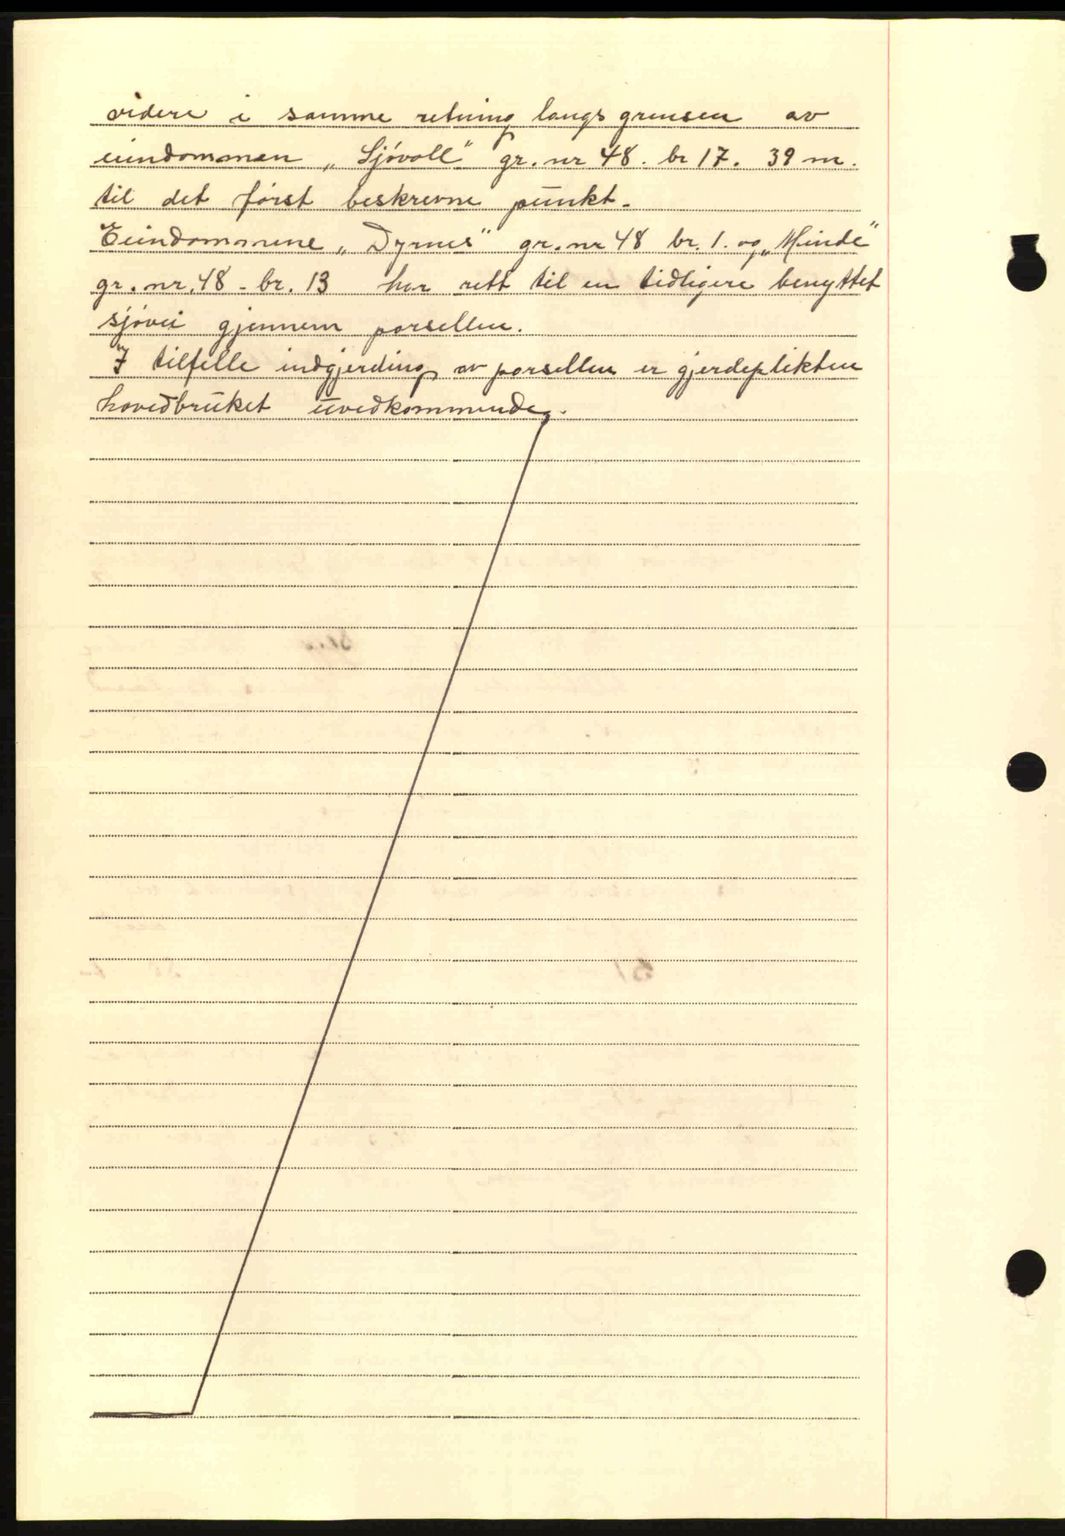 videre i samme retning langs grensen av
eiindommen „Sjøvoll" gr. nr 48. br 17. 39 m.
til det først beskrevne punkt.
Eiindommene „Dyrnes" gr. nr 48 br. 1. og „Minde"
gr. nr. 48 - br. 13 har rett til en tidligere benyttet
sjøvei gjennem parsellen.
I tilfelle indgjerding av parsellen er gjerdeplikten
hovedbruket uvedkommende.